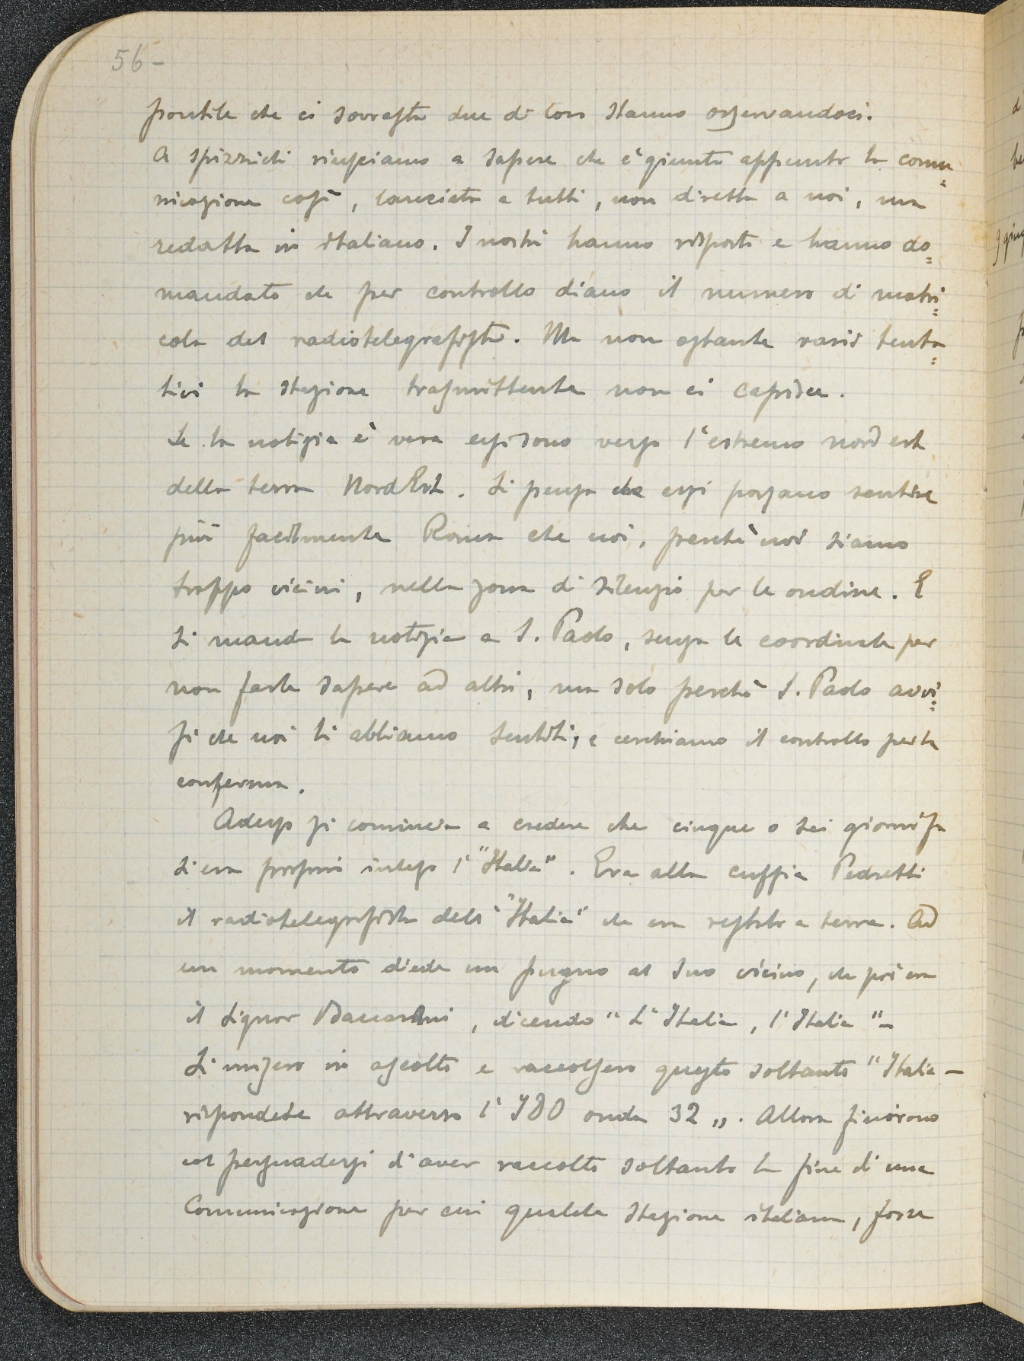 56-
pontile che ci sovrasta due di loro stanno osservandoci.
A spizzichi riusciamo a sapere che è giunta appunto la comu=
nicazione così, lanciata a tutti, non diretta a noi, ma
redatta in italiano. I nostri hanno risposto e hanno do=
mandato che per controllo diano il numero di matri=
cola del radiotelegrafista. Ma non ostante varii tenta=
tivi la stazione trasmittente non ci capisce.
Se la notizia è vera essi sono verso l'estremo nord est
della terra Nord Est. Si pensa che essi possano sentire
più facilmente Roma che noi, perchè noi siamo
troppo vicini, nella zona di silenzio per le ondine. E
si manda la notizia a S. Paolo, senza le coordinate per
non farla sapere ad altri, ma solo perchè S. Paolo avvi=
si che noi li abbiamo sentiti, e cerchiamo il controllo per la
conferma.
Adesso si comincia a credere che cinque o sei giorni fa
si era proprio inteso l'"Italia". Era alla cuffia Pedretti
il radiotelegrafista dell'"Italia" che era restato a terra. Ad
un momento diede un pugno al suo vicino, che poi era
il signor Baccarani, dicendo "L'Italia, l'Italia"-
Si misero in ascolto e raccolsero questo soltanto "Italia-
rispondete attraverso l'IDO onda 32„. Allora finirono
col persuadersi d'aver raccolto soltanto la fine di una
Comunicazione per cui qualche stazione italiana, forse